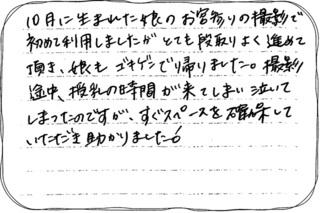 10月に生まれた娘のお宮参りの撮影で
初めて利用しましたが とても段取りよく進めて
頂き、娘も ゴキゲンで帰りました。撮影
途中、授乳の時間が来てしまい泣いて
しまったのですが、すぐスペースを確保して
いただき助かりました!